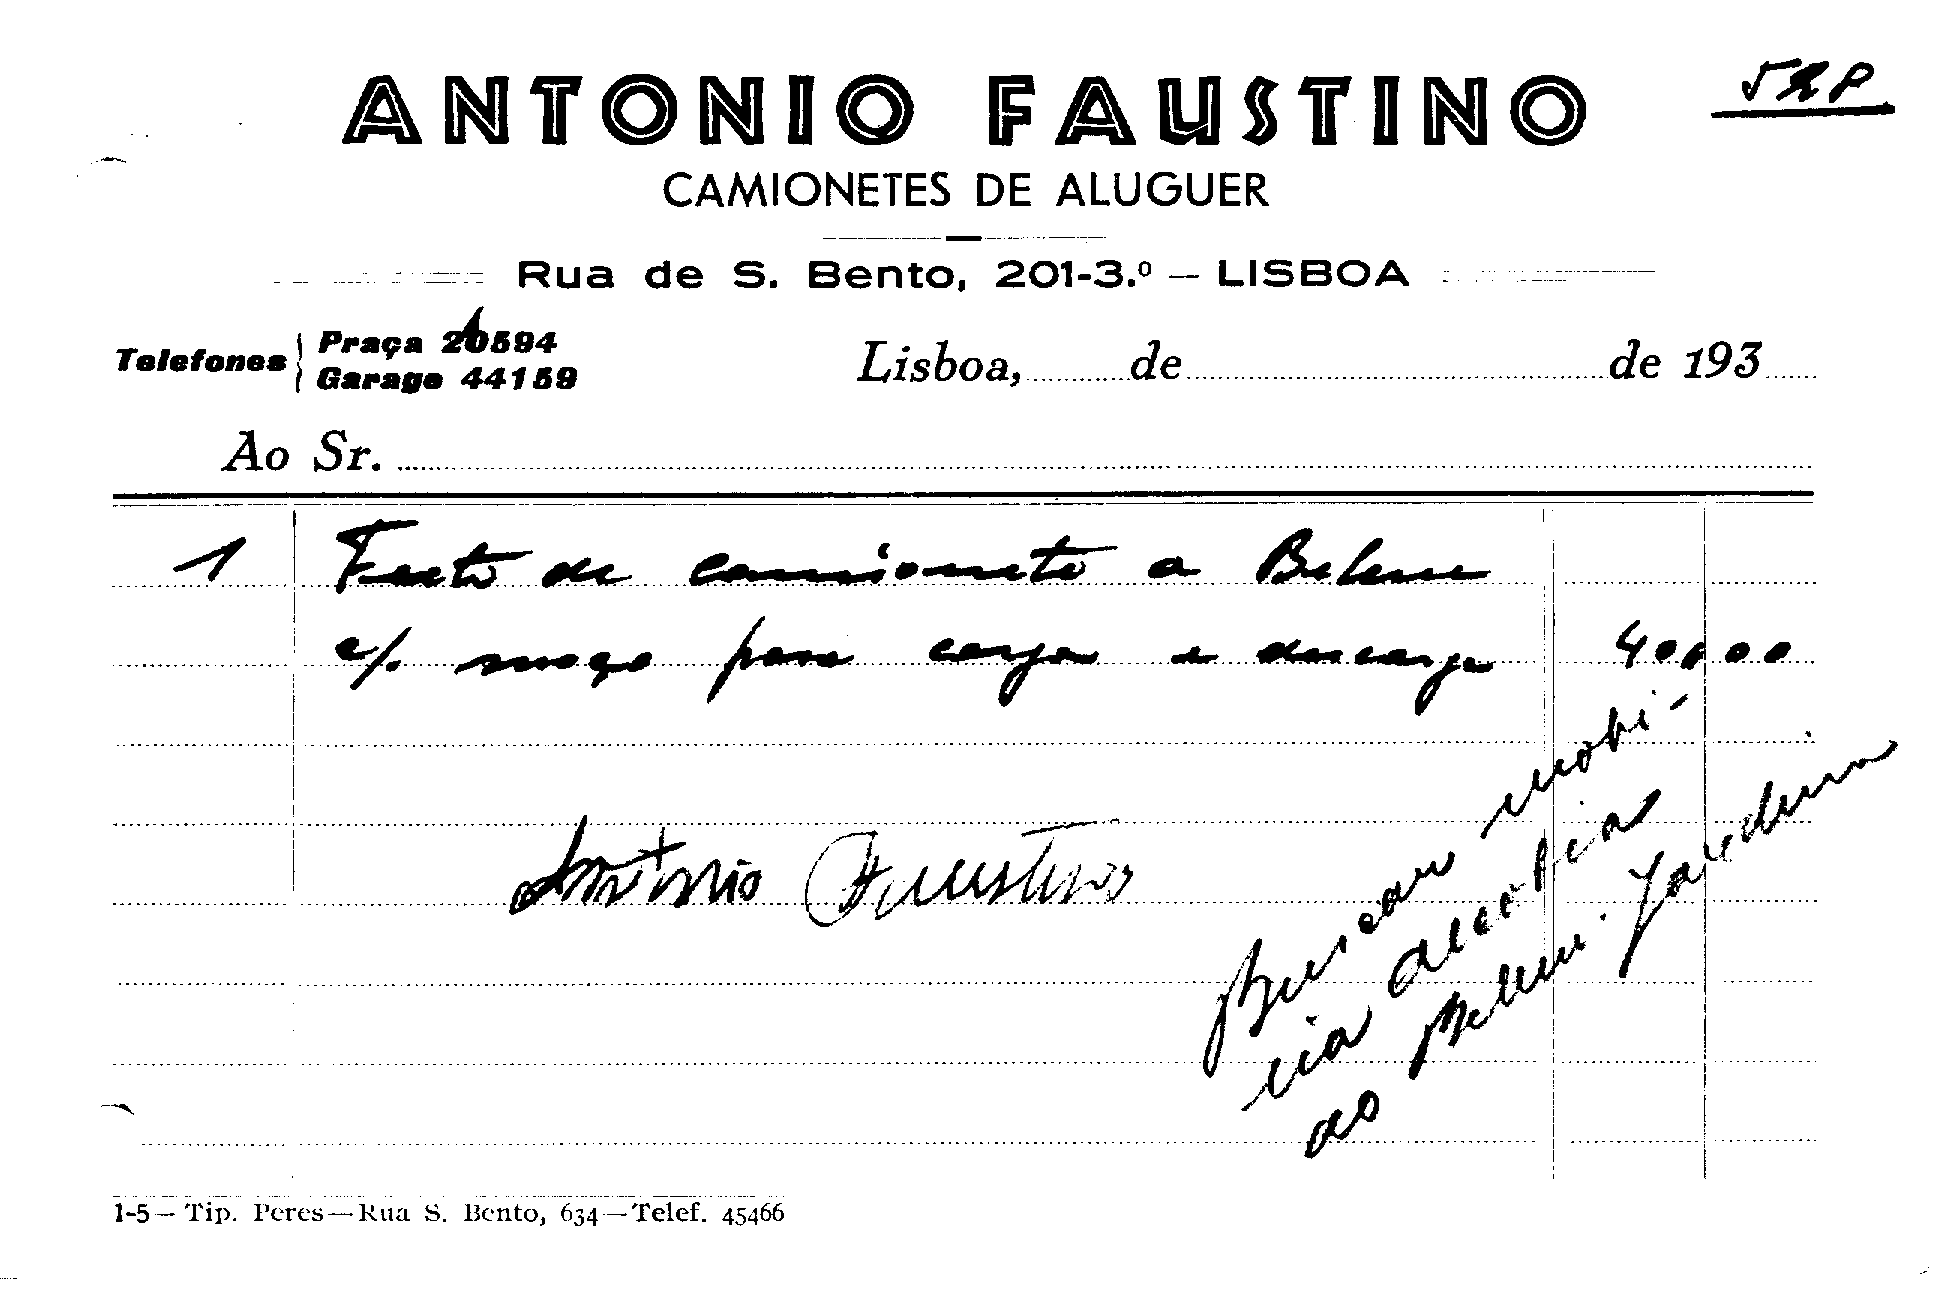 ANTONIO FAUSTINO
CAMIONETES DE ALUGUER
Rua de S. Bento, 201-3.º — LISBOA
Telefones
Praça 20594
Garage 44159
Lisboa, de de 193
Ao Sr.
1 de camioneta a Belem
c/. moço para carga e descarga 40$00
Antonio Faustino
Buscar mobi-
lia
ao Belem.
1-5 — Tip. Peres — Rua S. Bento, 634 — Telef. 45466